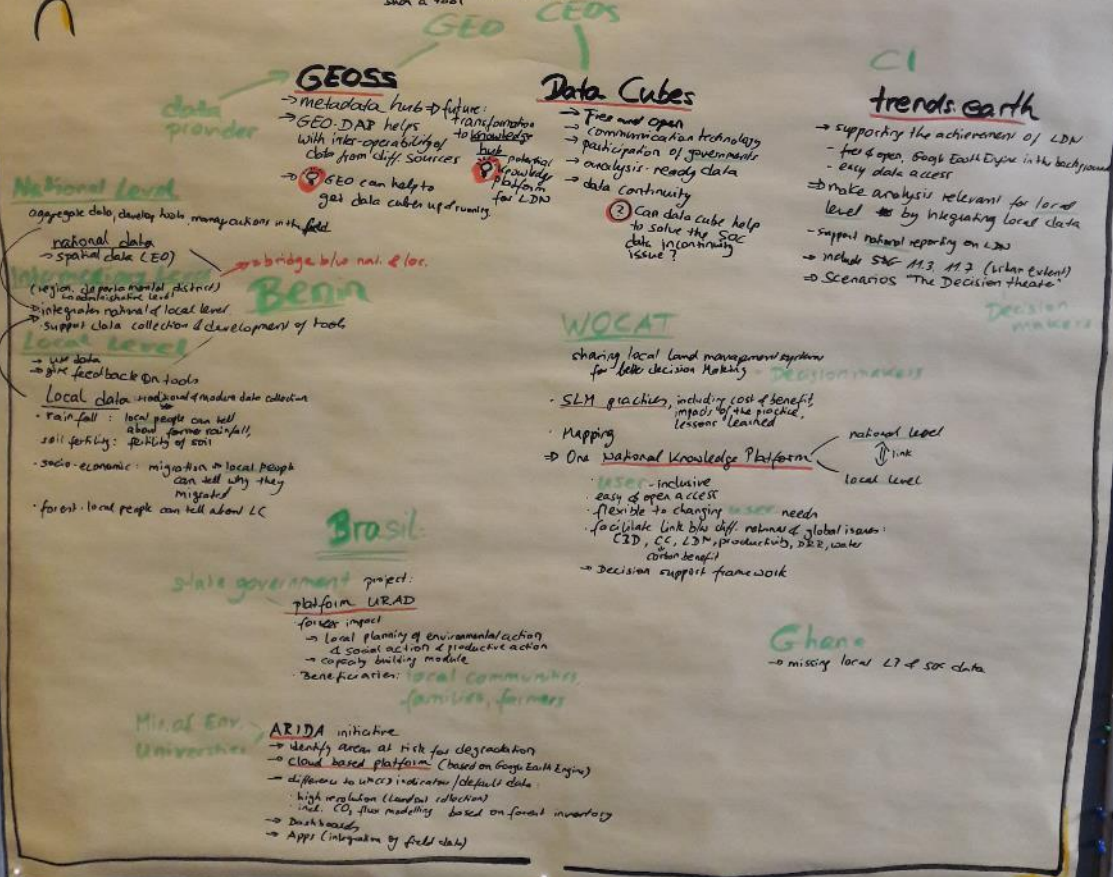 such a tool
GEO
CEOS
data
provider
GEOSS
→ metadata hub ⇒ future:
transformation
to knowledge
hub
→ GEO-DAB helps
with inter-operability of
data from diff. sources
potential
knowledge
platform
for LDN
→ GEO can help to
get data cubes up & running
Data Cubes
→ Free and open
→ communication technology
→ participation of governments
→ analysis-ready data
→ data continuity
? Can data cube help
to solve the SOC
data incontinuity
issue?
CI
trends.earth
→ supporting the achievement of LDN
- free & open, Google Earth Engine in the background
- easy data access
⇒ make analysis relevant for local
level by integrating local data
- support national reporting on LDN
→ include SDG 11.3, 11.7 (urban extent)
⇒ Scenarios "The Decision theatre"
Decision
makers
National Level
aggregate data, develop tools, many actions in the field
national data
→ spatial data (EO)
→ bridge b/w nat. & loc.
Intermediary Level
(region, departmental, district)
→ administrative level
Benin
→ integrates national & local level
· support data collection & development of tools
Local Level
→ use data
→ give feedback on tools
Local data traditional & modern data collection
· rainfall: local people can tell
about former rainfall,
soil fertility: fertility of soil
· socio-economic: migration → local people
can tell why they
migrated
· forest: local people can tell about LC
WOCAT
sharing local land management system
for better decision making - Decision makers
· SLM practices, including cost & benefit,
impacts of the practice,
lessons learned
· Mapping
⇒ One National Knowledge Platform
national level
⇕ link
local level
· user-inclusive
· easy & open access
· flexible to changing user needs
· facilitate link b/w diff. national & global issues:
CBD, CC, LDN, productivity, DRR, water
carbon benefit
→ Decision support framework
Brasil
state government project:
platform URAD
· impact
→ local planning of environmental action
& social action & productive action
→ capacity building module
· Beneficiaries: local communities,
families, farmers
Min. of Env.
Universities
ARIDA initiative
→ identify areas at risk for degradation
→ cloud based platform (based on Google Earth Engine)
→ difference to UNCCD indicators/default data:
· high resolution (Landsat collection)
· incl. CO₂ flux modelling based on forest inventory
→ Dashboards
→ Apps (integration of field data)
Ghana
→ missing local LP & SOC data